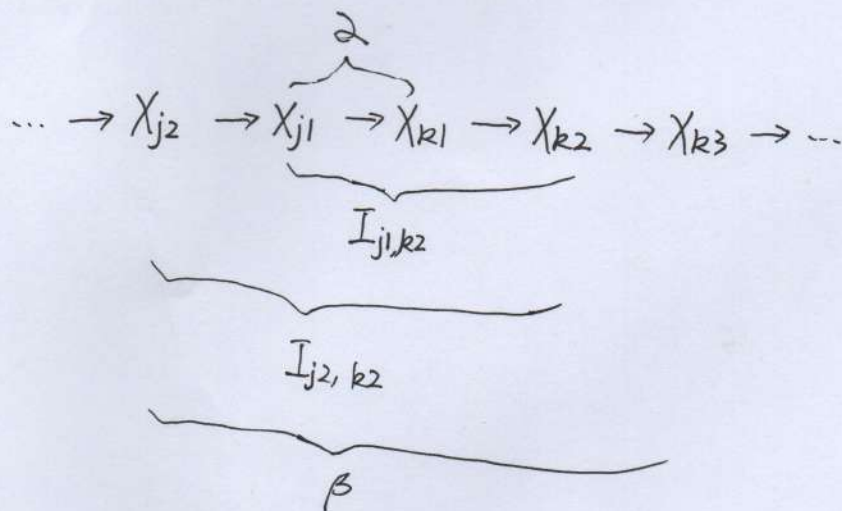 2
... → X_{j2} → X_{j1} → X_{k1} → X_{k2} → X_{k3} → ...
I_{j1,k2}
I_{j2,k2}
β